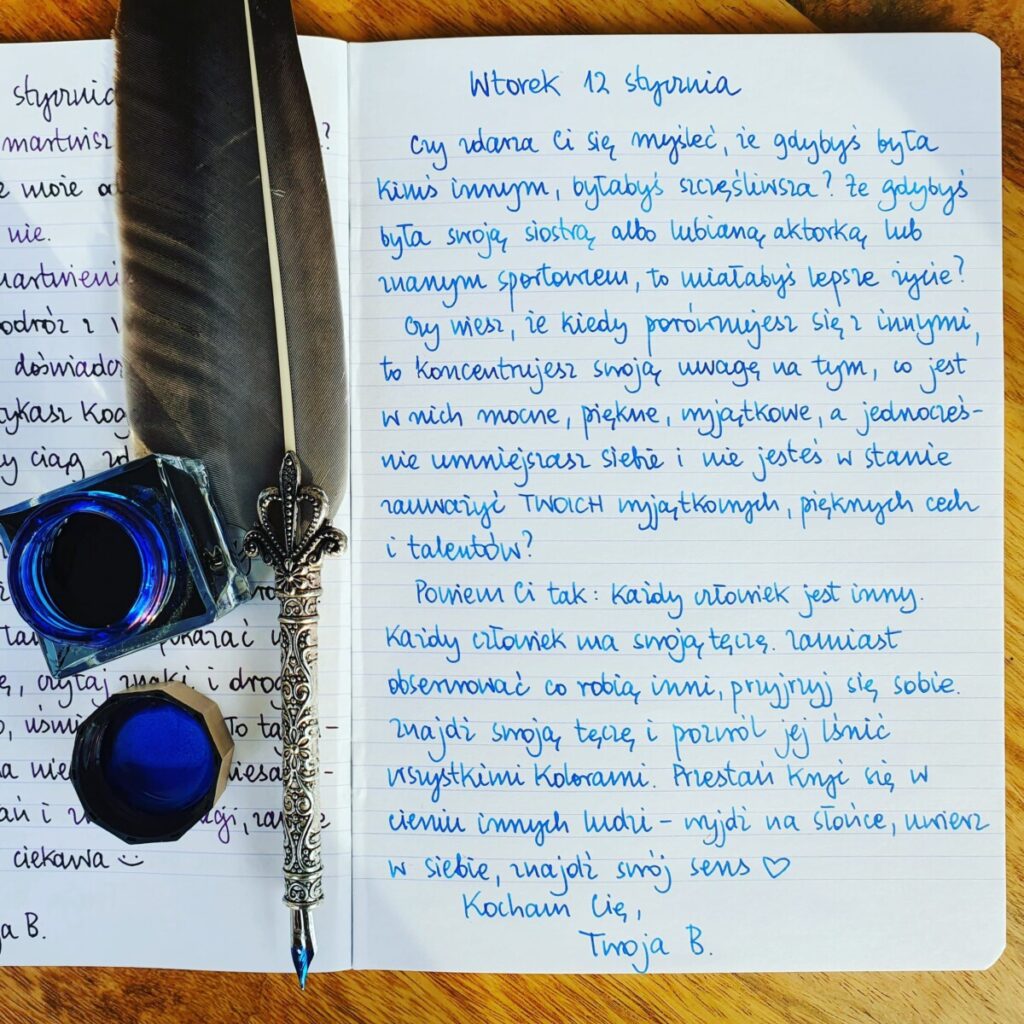 stycznia
martwisz ?
może
nie.
z
ciąg
czytaj znaki i
To
i
ciekawa :)
B.
Wtorek 12 stycznia
Czy zdarza Ci się myśleć, że gdybyś była
kimś innym, byłabyś szczęśliwsza? Że gdybyś
była swoją siostrą albo lubianą aktorką lub
znanym sportowcem, to miałabyś lepsze życie?
Czy wiesz, że kiedy porównujesz się z innymi,
to koncentrujesz swoją uwagę na tym, co jest
w nich mocne, piękne, wyjątkowe, a jednocześ-
nie umniejszasz siebie i nie jesteś w stanie
zauważyć TWOICH wyjątkowych, pięknych cech
i talentów?
Powiem Ci tak: każdy człowiek jest inny.
Każdy człowiek ma swoją tęczę. Zamiast
obserwować co robią inni, przyjrzyj się sobie.
Znajdź swoją tęczę i pozwól jej lśnić
wszystkimi kolorami. Przestań kryć się w
cieniu innych ludzi – wyjdź na słońce, uwierz
w siebie, znajdź swój sens ♡
Kocham Cię,
Twoja B.